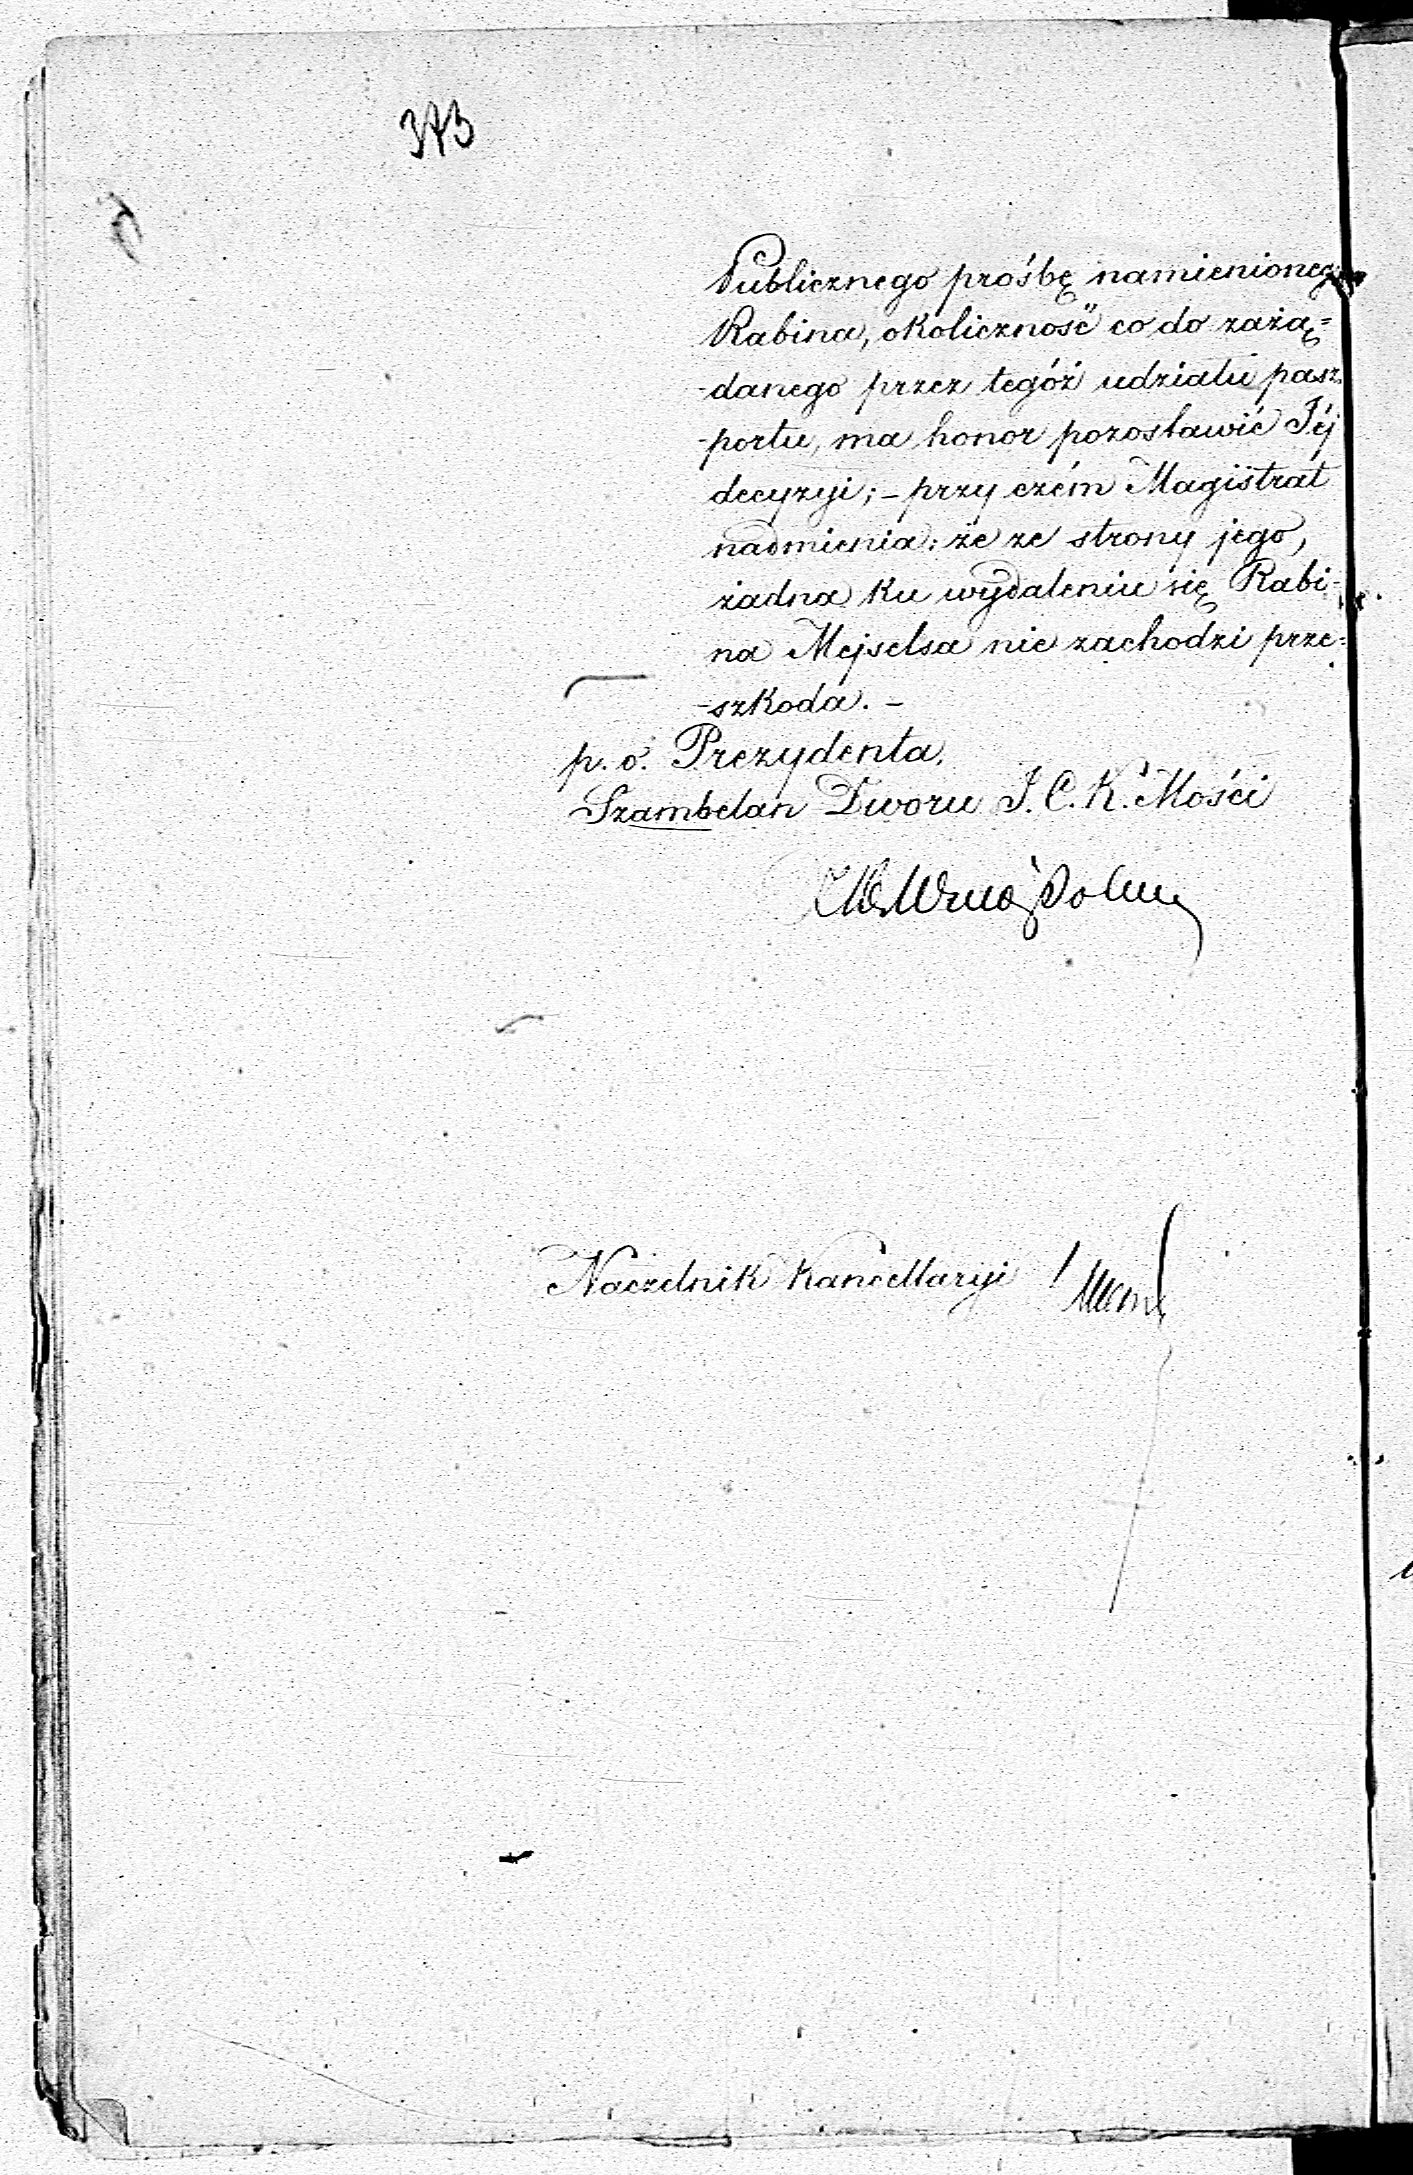 373
Publicznego prośbę namienionego
Rabina, okoliczność co do zażą=
-danego przez tegóż udziału pasz
-portu, ma honor pozostawić Jéj
decyzyi; - przy czém Magistrat
nadmienia: że ze strony jego,
żadna ku wydaleniu się Rabi-
na Mejselsa nie zachodzi prze=
-szkoda. -
p. o. Prezydenta,
Szambelan Dworu J. C. K. Mości
Naczelnik Kancellaryi